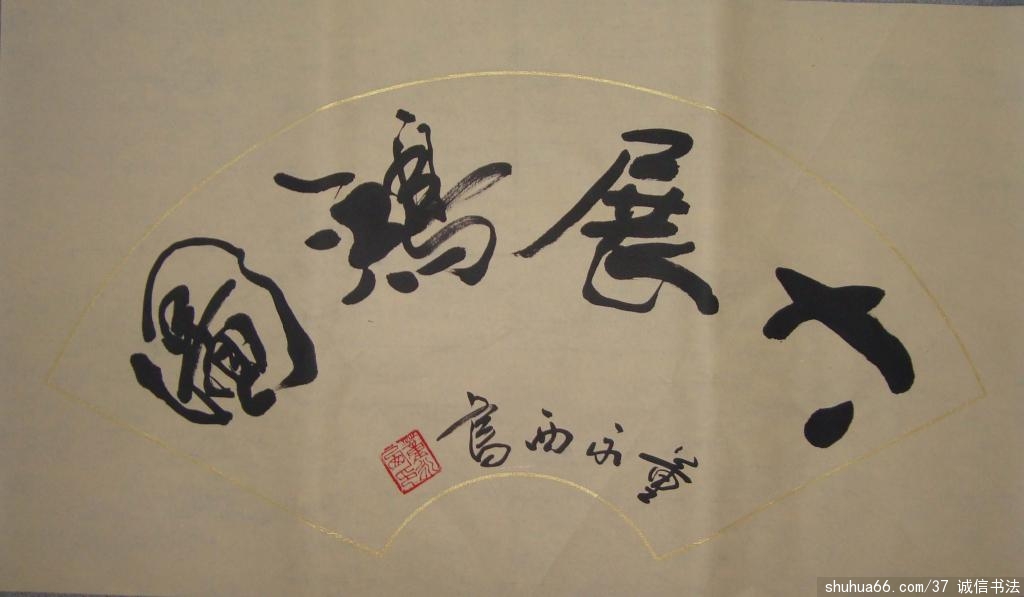 大展鴻圖
董永西
shuhua66.com/37 诚信书法